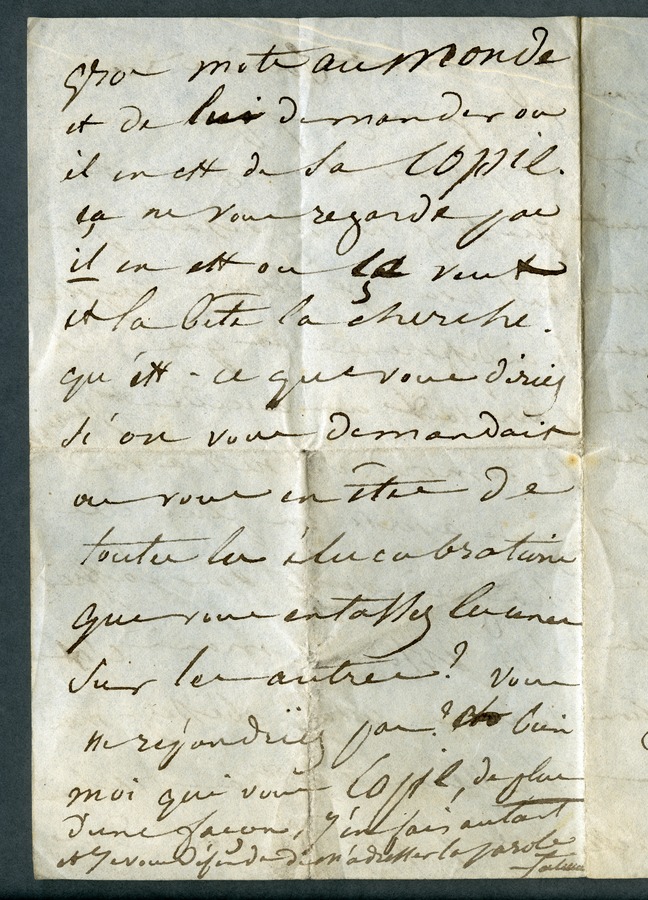 gros mots au monde
et de lui demander ou
il en est de sa copie.
ça ne vous regarde pas
il en est ou ça veut
et la bête la cherche.
qu'est-ce que vous diriez
si on vous demandait
ou vous en êtes de
toutes les élucubrations
que vous entassez les unes
sur les autres? vous
ne répondriez pas? bien
moi qui vous copie, de plus
d'une façon, j'en fais autant
et je vous défends de m'adresser la parole